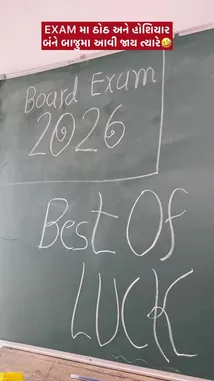 EXAM મા ઠોઠ અને હોશિયાર
બંને બાજુમા આવી જાય ત્યારે🤣
Board Exam
2026
Best Of
LUCK